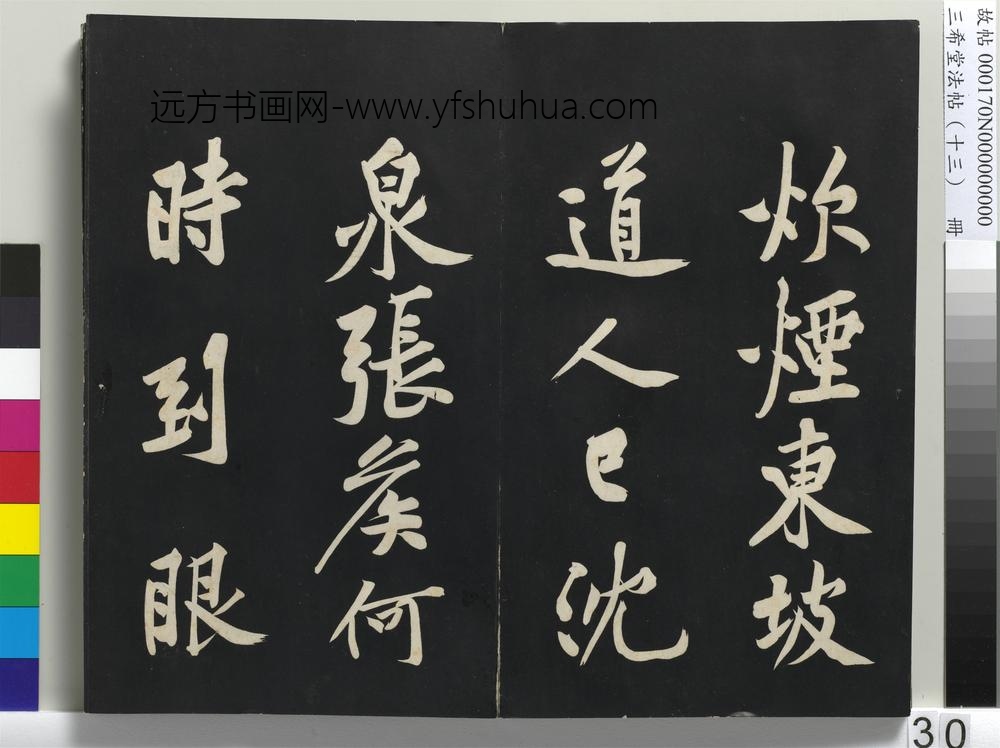 炊煙東坡
道人已沈
泉張矦何
時到眼
远方书画网-www.yfshuhua.com
故帖 000170N000000000
三希堂法帖（十三） 冊
30